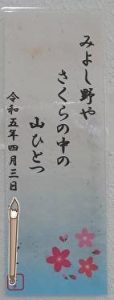 みよし野や
さくらの中の
山ひとつ
令和五年四月三日